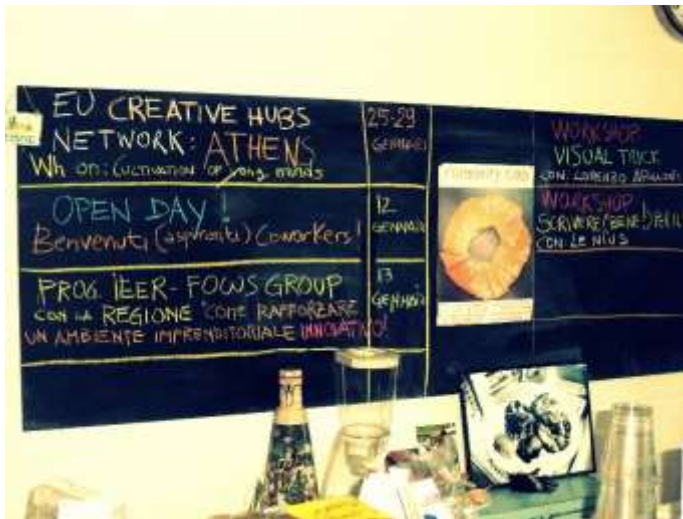 EU CREATIVE HUBS
NETWORK: ATHENS
Wh on: CULTIVATION OF yong minds
25-29
GENNAIO
OPEN DAY !
Benvenuti (aspiranti) Coworkers!
12
GENNAIO
PROG. IEER - FOCUS GROUP
CON LA REGIONE "COME RAFFORZARE
UN AMBIENTE IMPRENDITORIALE INNOVATIVO!
13
GENNAIO
COMMUNITY
WORKSHOP
VISUAL TRICK
CON: LORENZO
WORKSHOP
SCRIVERE (BENE!) PER IL
CON LE NIUS